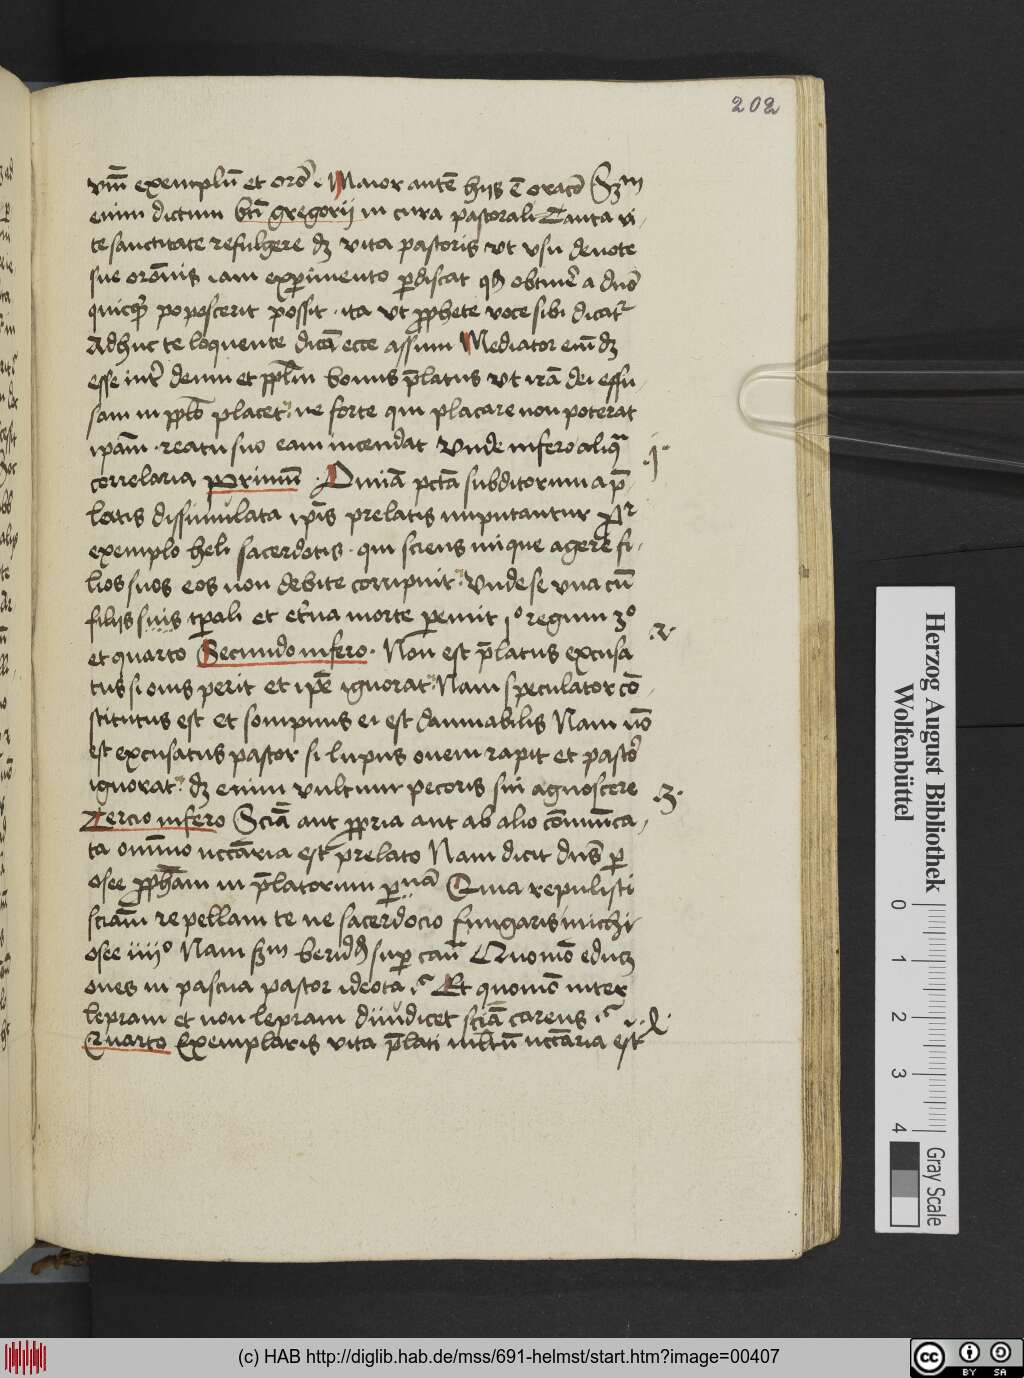 202
vim̄ exemplū et ordō . Maior autē hijs ē oracō Scᵈm
enim dictum bti gregorij in cura pastorali Tanta vi-
te sanctitate refulgere dz vita pastoris vt vsu deuote
sue orōnis iam experimento perdiscat qd obtinē a dnō
quicqd poposcerit possit . ita vt prophete voce sibi dicatr
Adhuc te loquente dicā ecce assum Mediator eni dz
esse intr deum et pplm bonus p̄latus vt irā dei effu-
sam in pplō placet ne forte qui placare non poterat
ipām . reatu suo eam incendat Vnde infero aliqᵃ
correlaria Primū . Omīa pctā subditorum a p̄-
latis dissimulata ip̄is prelatis imputantur Pr
exemplo heli sacerdotis . qui sciens inique agere fi-
lios suos eos non debite corripuit Vnde se vna cū
filijs suis tpali et etna morte pemit jº regum 3º
et quarto Secundo infero . Non est p̄latus excusa
tus si ouis perit et ipē ignorat Nam speculator cō-
stitutus est et sompnus ei est damnabilis Nam nō
est excusatus pastor si lupus ouem rapit et pastor
ignorat dz enim vultum pecoris sui agnoscere
Tercio infero Sciā aut ppria aut ab alio cōmuīca-
ta omīno nccāria est prelato Nam dicit dns̄ per
osee pphām in p̄latorum pnā Quia repulisti
sciām repellam te ne sacerdocio fungaris michi
osee iiijº Nam scᵈm super Quomō educ
oues in pascua pastor ideota ? Et quomō inter
lepram et non lepram diiudicet sciā carens ?
Quarto Exemplaris vita p̄lati nccāria est
.j.
.2.
.3.
Herzog August Bibliothek
Wolfenbüttel
0 1 2 3 4
Gray Scale
(c) HAB http://diglib.hab.de/mss/691-helmst/start.htm?image=00407
cc BY SA